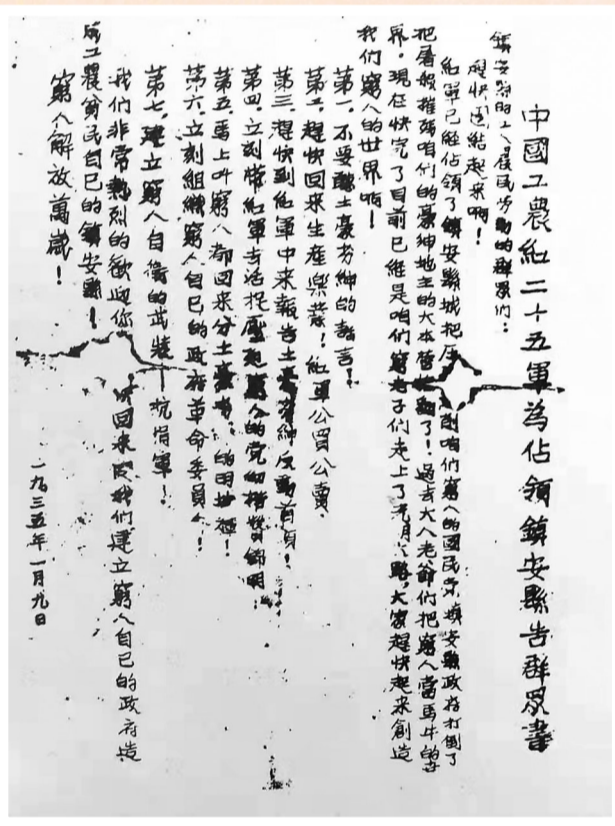 中國工農紅二十五軍為佔領鎮安縣告群眾書
鎮安縣的工人農民劳動的群眾们：
趕快團結起来啊！
紅軍已經佔領了鎮安縣城把压削咱们窮人的國民党鎮安縣政府打倒了
把屠殺摧殘咱们的豪紳地主的大本营推翻了！過去大人老爺们把窮人當馬牛的世
界，現在快完了目前已經是咱们窮子们走上了光明之路，大家趕快起来創造
我们窮人的世界啊！
第一，不要聽土豪劣紳的謠言！
第二，趕快回来生産樂業！紅軍公買公賣，
第三，趕快到紅軍中来報告土豪劣紳反動首領！
第四，立刻帶紅軍去活捉壓迫窮人的党
第五，馬上叫窮人都回来分土豪的田地種！
第六，立刻組織窮人自已的政府革命委員会！
第七，建立窮人自衛的武裝—抗捐軍！
我们非常熱烈的歡迎你回来同我们建立窮人自已的政府造
成工農貧民自已的鎮安縣！
窮人解放萬歲！
一九三五年一月九日